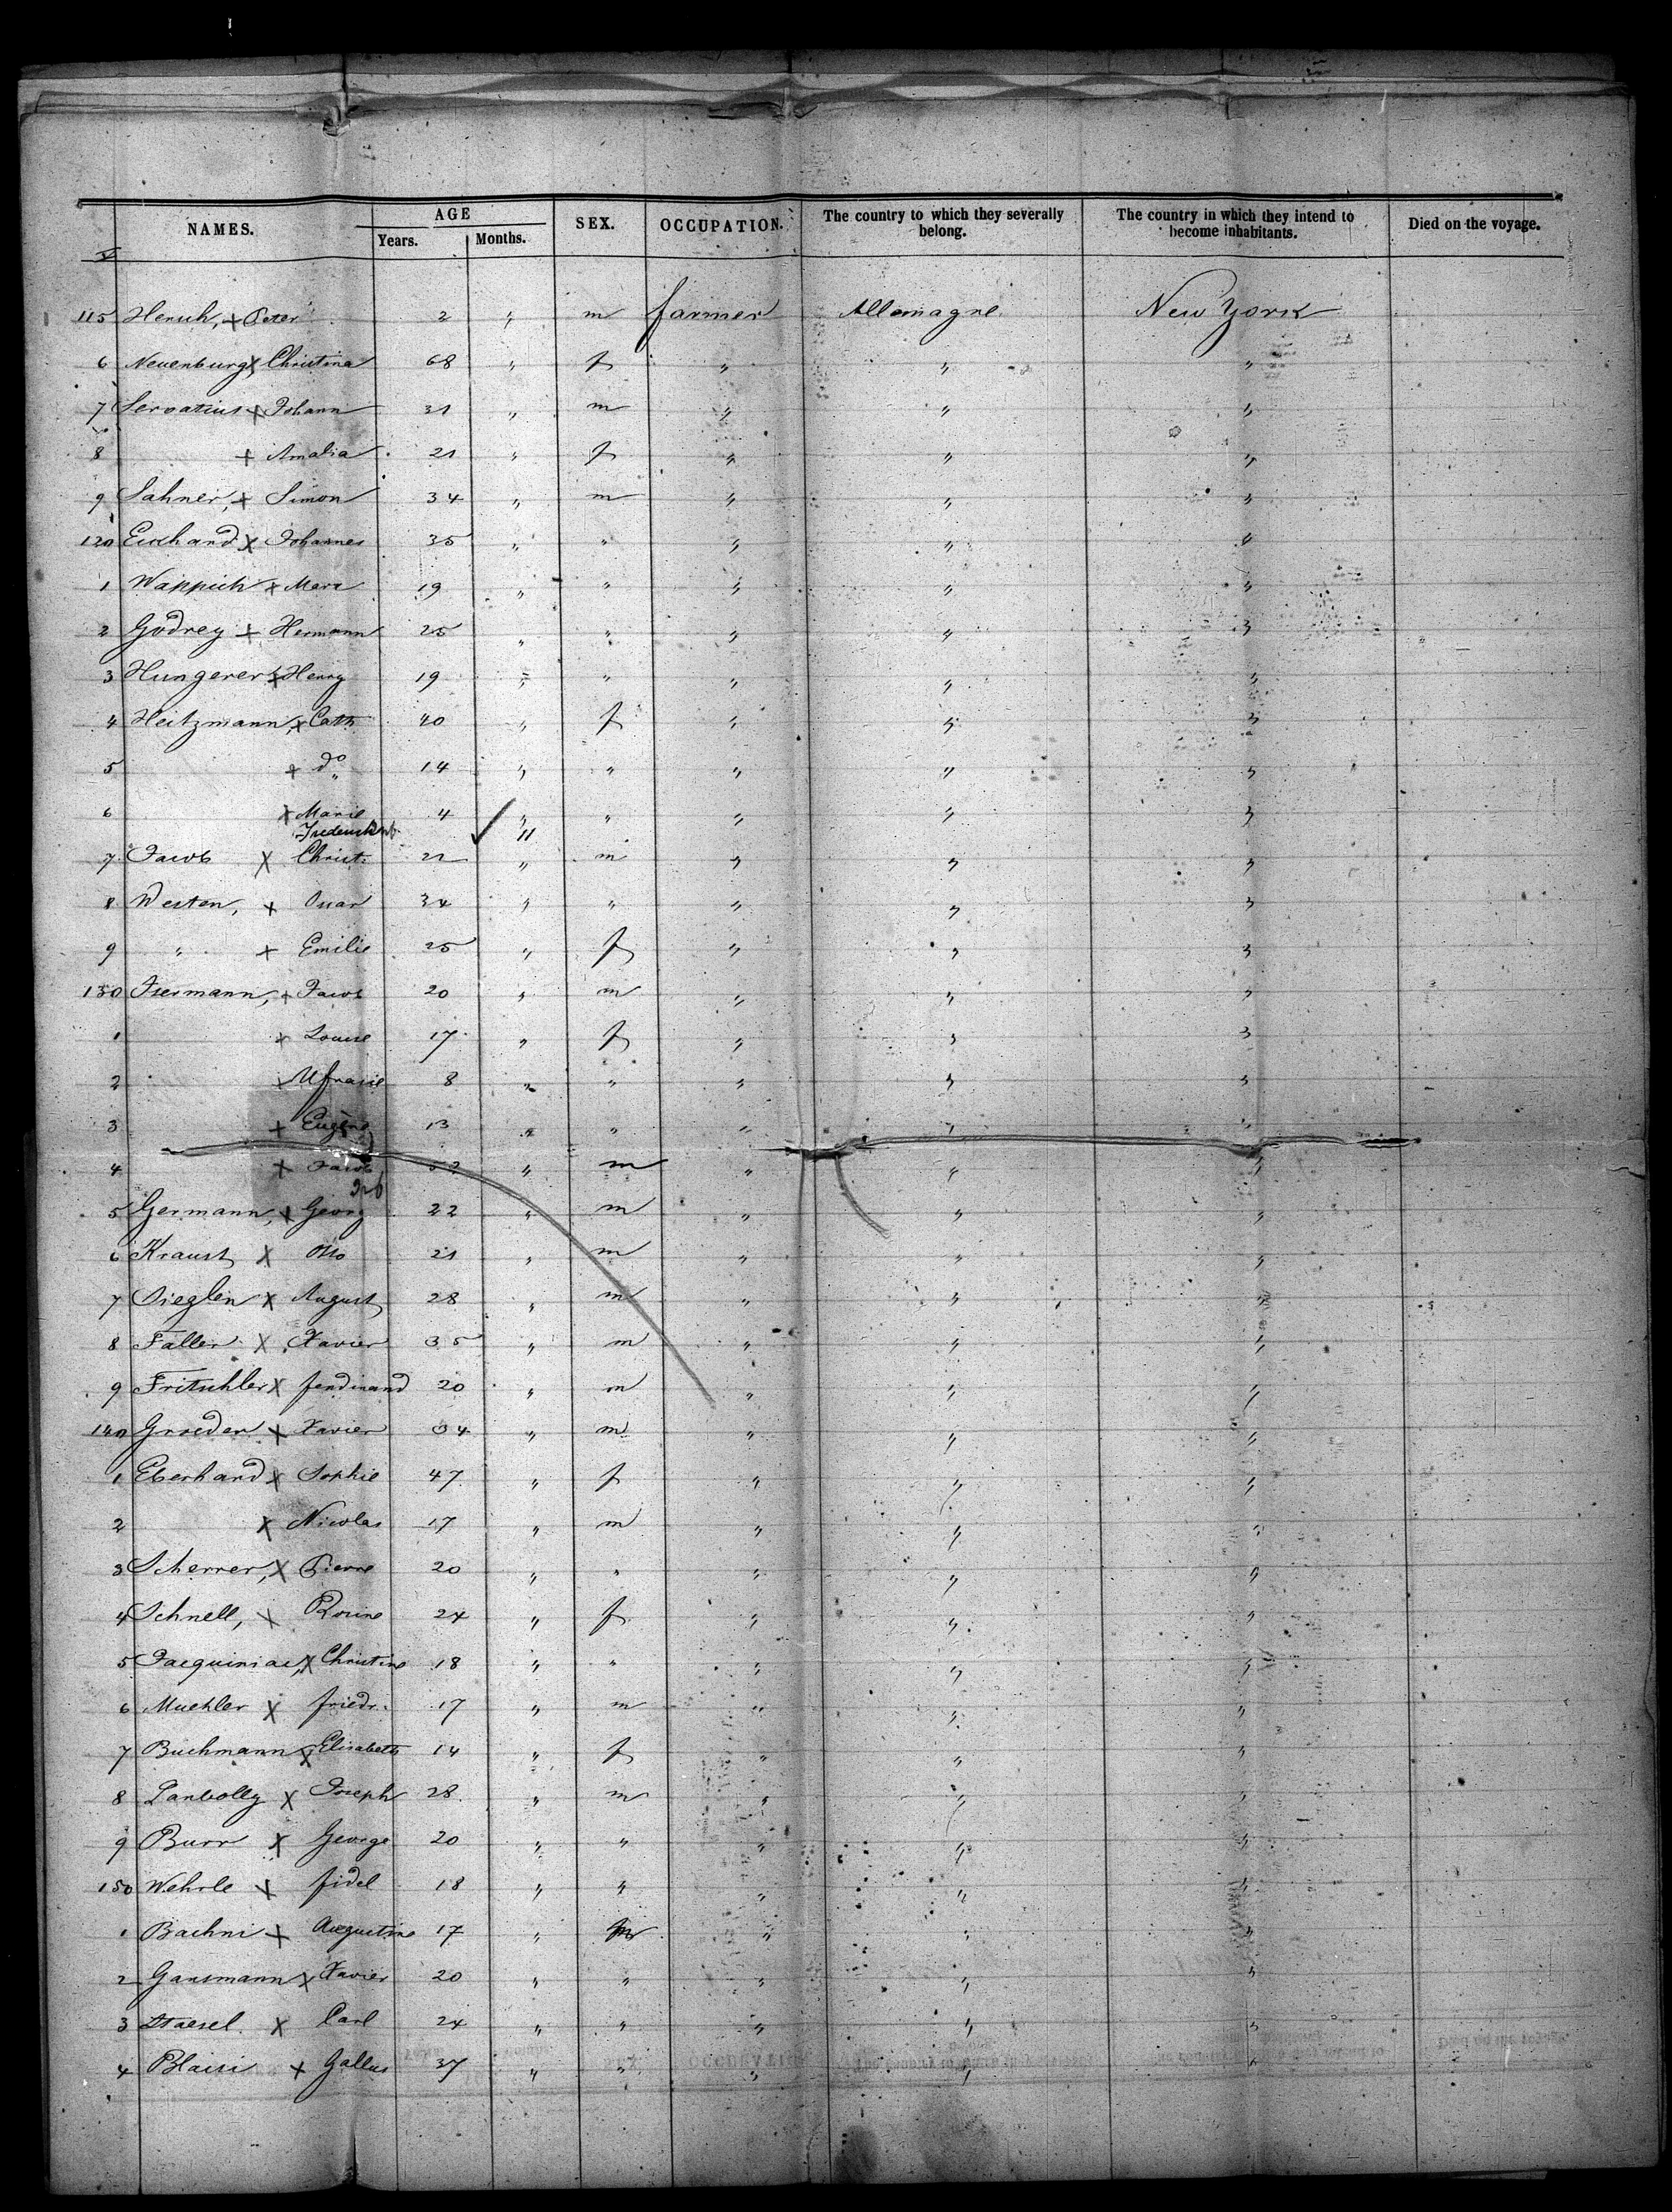 NAMES. AGE SEX. OCCUPATION. The country to which they severally belong. The country in which they intend to become inhabitants. Died on the voyage.
Years. Months.
115 Henuh, + Peter 2 " m farmer Allemagne New York
6 Neuenburg, x Christina 68 " f " " "
7 Servatius + Johann 31 " m " " "
8 + Amalia 21 " f " " "
9 Sahner, + Simon 34 " m " " "
120 Eckhard x Johannes 35 " " " " "
1 Wappich x Marx 19 " " " " "
2 Godrey + Hermann 25 " " " " "
3 Hungerer x Henry 19 " " " " "
4 Heitzmann, x Cath 40 " f " " "
5 + do 14 " " " " "
6 x Marie 4 " " " " "
Frederick 11
7 Jacob x Christ. 22 " m " " "
8 Westen, x Oscar 34 " " " " "
9 " + Emilie 25 " f " " "
130 Isermann, + Jacob 20 " m " " "
1 + Louise 17 " f " " "
2 x Ufrasie 8 " " " " "
3 + Eugène 13 " " " " "
4 x Jacob 52 " m " " "
5 Germann, x Georg 22 " m " " "
6 Kraust x Otto 21 " m " " "
7 Sieglen x August 28 " m " " "
8 Faller x Xavier 35 " m " " "
9 Fritschler x ferdinand 20 " m " " "
140 Groeder x Xavier 34 " m " " "
1 Eberhard x Sophie 47 " f " " "
2 x Nicolas 17 " m " " "
3 Scherrer, x Pierre 20 " " " " "
4 Schnell, x Rosine 24 " f " " "
5 Jacquiniac, x Christine 18 " " " " "
6 Muehler x friedr. 17 " m " " "
7 Buchmann x Elisabeth 14 " f " " "
8 Panbolly x Joseph 28 " m " " "
9 Burr x George 20 " " " " "
150 Wehrle x fidel 18 " " " " "
1 Bachni + Augustine 17 " " " "
2 Gansmann x Xavier 20 " " " " "
3 Staesel x Carl 24 " " " " "
4 Blaisi x Gallus 37 " " " " "